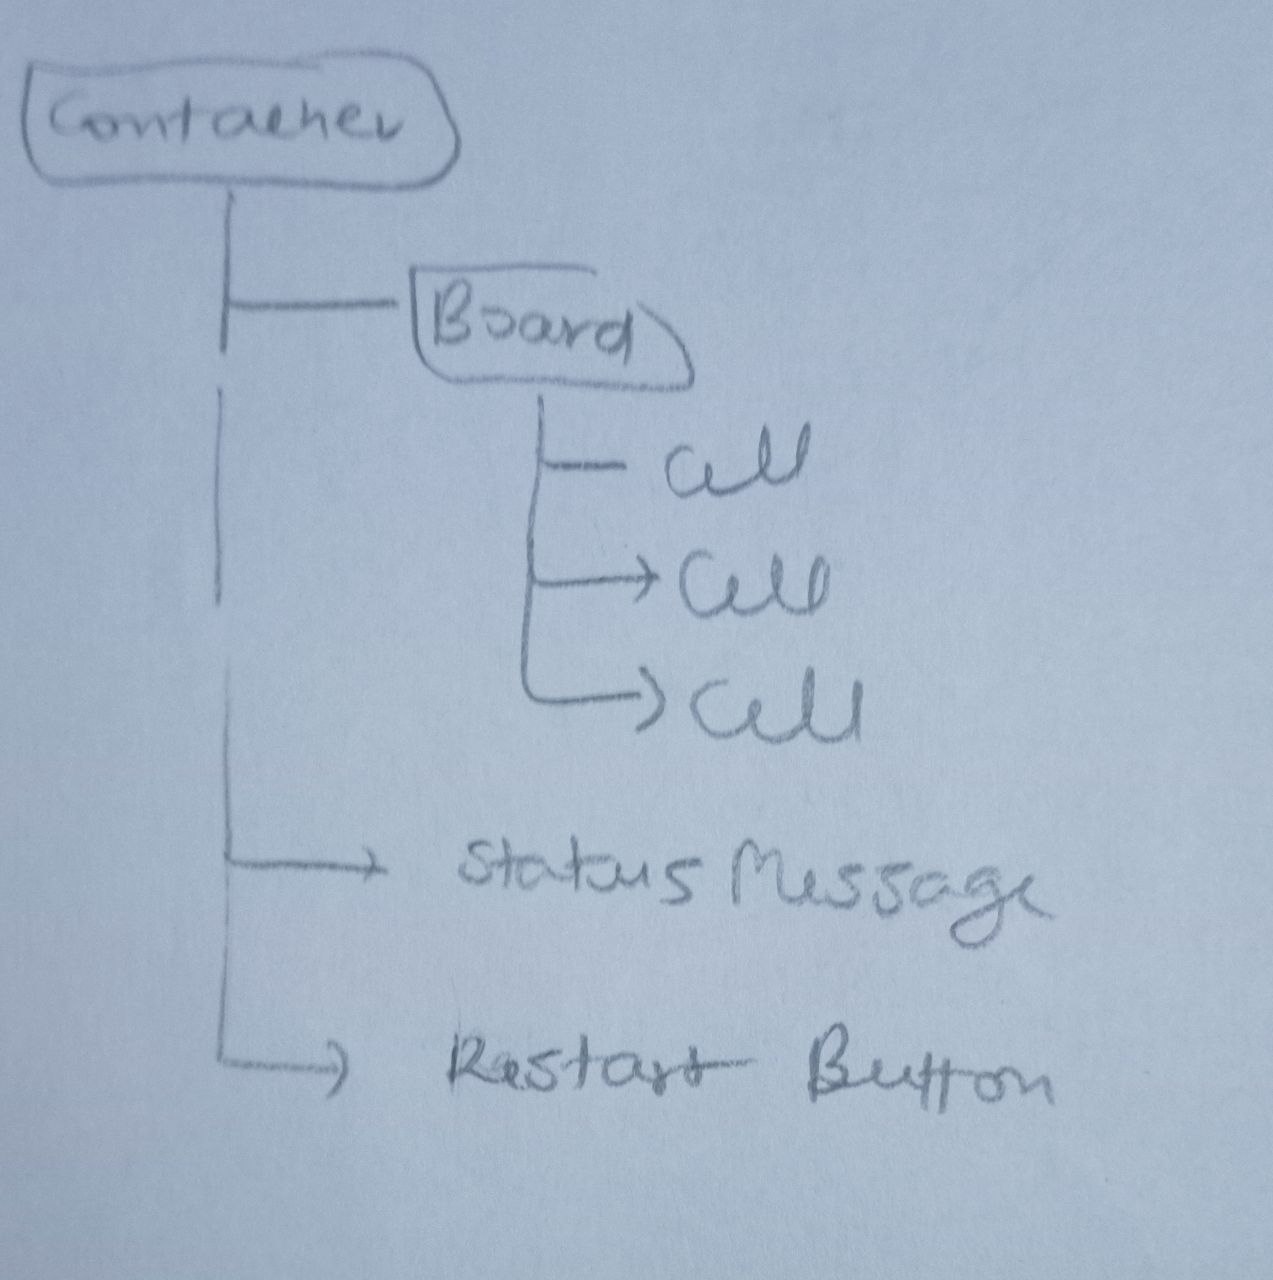 Container
Board
Cell
Cell
Cell
Status Message
Restart Button